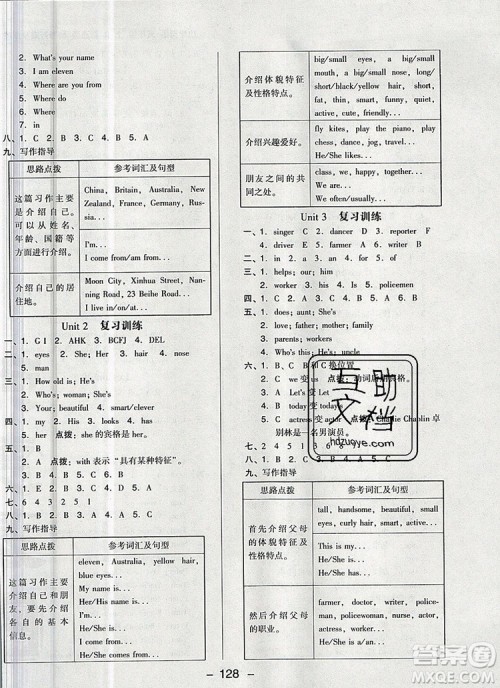 2. What's your name
3. I am eleven
4. Where are you from
5. Where do
6. Where
7. in
八、1. C 2. B 3. C 4. B 5. A
九、写作指导
思路点拨 参考词汇及句型
这篇习作主要是介绍自己。可以从姓名、年龄、国籍等方面进行介绍。
China, Britain, Australia, New Zealand, France, Germany, Russia
I'm...
I come from/am from...
介绍自己的居住地。
Moon City, Xinhua Street, Nanjing Road, 23 Beihe Road...
I live in/at...
Unit 2 复习训练
一、1. GI 2. AHK 3. BCFJ 4. DEL
二、1. eyes 2. She; Her 3. hair 4. nose
5. man
三、1. How old is; He's
2. Who's; woman's
3. is; beautiful 4. smart/clever
四、1. my 2. His 3. Our 4. Their 5. Her
6. her 点拨: she的宾格是her。
五、1. Who's 2. an 3. She
4. A 点拨: with表示“具有某种特征”。
六、1. E 2. D 3. C 4. B 5. A
七、6 4 3 2 5 1
八、1. B 2. A 3. A 4. C 5. B
九、写作指导
思路点拨 参考词汇及句型
这篇习作主要介绍自己和朋友,要先介绍各自的基本信息。
eleven, Australia, yellow hair, blue eyes...
My name is...
Her/His name is...
I am...
He/She is...
I come from...
He/She is from...
介绍体貌特征及性格特点。
big/small eyes, a big/small mouth, a big/small nose, short/long/black/yellow hair, strong, fat, smart, funny, quiet, active, cute, friendly...
介绍兴趣爱好。
fly kites, play the piano, play chess, dance, swim...
He/She likes...
朋友之间的共同之处。
class, we, happy, together...
We are...
We often/usually...
Unit 3 复习训练
一、1. singer 2. dancer 3. doctor
4. driver 5. actor 6. farmer
二、1. helps; our; him
2. an; an 3. Us 4. policemen
5. worker
三、1. does; aunt; She's
2. How; your; father
3. parents; workers
4. Who's this; He's; uncle
四、1. B 2. A 3. B 4. B 5. A
五、1. B和C换位置
2. we变us
3. Let's变Let
4. actress变actor
别林是一名男演员。
六、1. C 2. D 3. A 4. E 5. B
七、2 5 3 6 1 4
八、1. F 2. T 3. T 4. F 5. F
九、写作指导
思路点拨 参考词汇及句型
首先介绍父母的体貌特征及性格特点。
tall, handsome, beautiful, small eyes, curly hair, smart, active...
He/She is...
He/She has...
然后介绍父母的职业。
farmer, doctor, writer, policeman, worker, nurse, policewoman...
He/She is...
- 128 -
互助文档
hdzuoye.com
答案圈
MXQE.COM